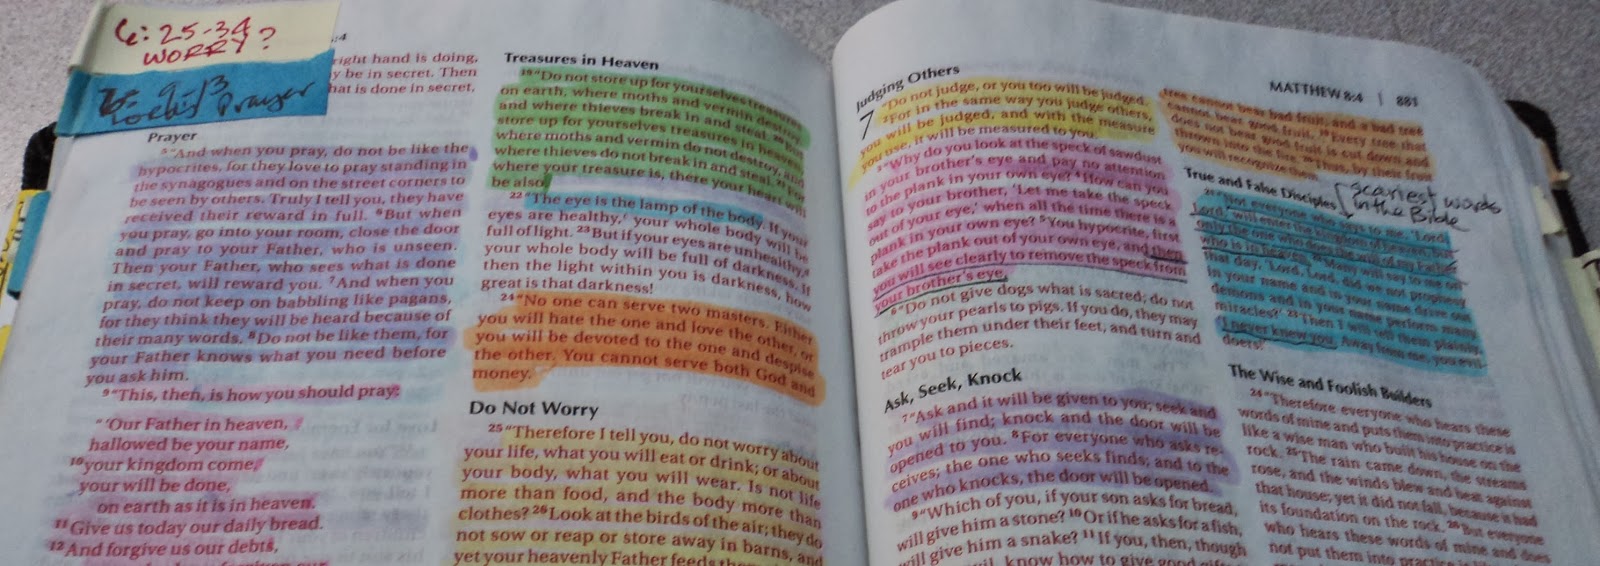 6:25-34
WORRY?
:4
right hand is doing,
y be in secret. Then
hat is done in secret,
Prayer
Prayer
5 "And when you pray, do not be like the
hypocrites, for they love to pray standing in
the synagogues and on the street corners to
be seen by others. Truly I tell you, they have
received their reward in full. 6 But when
you pray, go into your room, close the door
and pray to your Father, who is unseen.
Then your Father, who sees what is done
in secret, will reward you. 7 And when you
pray, do not keep on babbling like pagans,
for they think they will be heard because of
their many words. 8 Do not be like them, for
your Father knows what you need before
you ask him.
9 "This, then, is how you should pray:
"'Our Father in heaven,
hallowed be your name,
10 your kingdom come,
your will be done,
on earth as it is in heaven.
11 Give us today our daily bread.
12 And forgive us our debts,
Treasures in Heaven
19 "Do not store up for yourselves treasures
on earth, where moths and vermin destroy,
and where thieves break in and steal. 20 But
store up for yourselves treasures in heaven,
where moths and vermin do not destroy, and
where thieves do not break in and steal. 21 For
where your treasure is, there your heart will
be also.
22 "The eye is the lamp of the body. If your
eyes are healthy, your whole body will be
full of light. 23 But if your eyes are unhealthy,
your whole body will be full of darkness. If
then the light within you is darkness, how
great is that darkness!
24 "No one can serve two masters. Either
you will hate the one and love the other, or
you will be devoted to the one and despise
the other. You cannot serve both God and
money.
Do Not Worry
25 "Therefore I tell you, do not worry about
your life, what you will eat or drink; or about
your body, what you will wear. Is not life
more than food, and the body more than
clothes? 26 Look at the birds of the air; they do
not sow or reap or store away in barns, and
yet your heavenly Father feeds
MATTHEW 8:4 | 881
Judging Others
7 "Do not judge, or you too will be judged.
2 For in the same way you judge others,
you will be judged, and with the measure
you use, it will be measured to you.
3 "Why do you look at the speck of sawdust
in your brother's eye and pay no attention
to the plank in your own eye? 4 How can you
say to your brother, 'Let me take the speck
out of your eye,' when all the time there is a
plank in your own eye? 5 You hypocrite, first
take the plank out of your own eye, and then
you will see clearly to remove the speck from
your brother's eye.
6 "Do not give dogs what is sacred; do not
throw your pearls to pigs. If you do, they may
trample them under their feet, and turn and
tear you to pieces.
Ask, Seek, Knock
7 "Ask and it will be given to you; seek and
you will find; knock and the door will be
opened to you. 8 For everyone who asks re-
ceives; the one who seeks finds; and to the
one who knocks, the door will be opened.
9 "Which of you, if your son asks for bread,
will give him a stone? 10 Or if he asks for a fish,
will give him a snake? 11 If you, then, though
know how to give good
tree cannot bear bad fruit, and a bad tree
cannot bear good fruit. 19 Every tree that
does not bear good fruit is cut down and
thrown into the fire. 20 Thus, by their fruit
you will recognize them.
True and False Disciples
scariest words
in the Bible
21 "Not everyone who says to me, 'Lord,
Lord,' will enter the kingdom of heaven, but
only the one who does the will of my Father
who is in heaven. 22 Many will say to me on
that day, 'Lord, Lord, did we not prophesy
in your name and in your name drive out
demons and in your name perform many
miracles?' 23 Then I will tell them plainly,
'I never knew you. Away from me, you evil-
doers!'
The Wise and Foolish Builders
24 "Therefore everyone who hears these
words of mine and puts them into practice is
like a wise man who built his house on the
rock. 25 The rain came down, the streams
rose, and the winds blew and beat against
that house; yet it did not fall, because it had
its foundation on the rock. 26 But everyone
who hears these words of mine and does
not put them into practice is